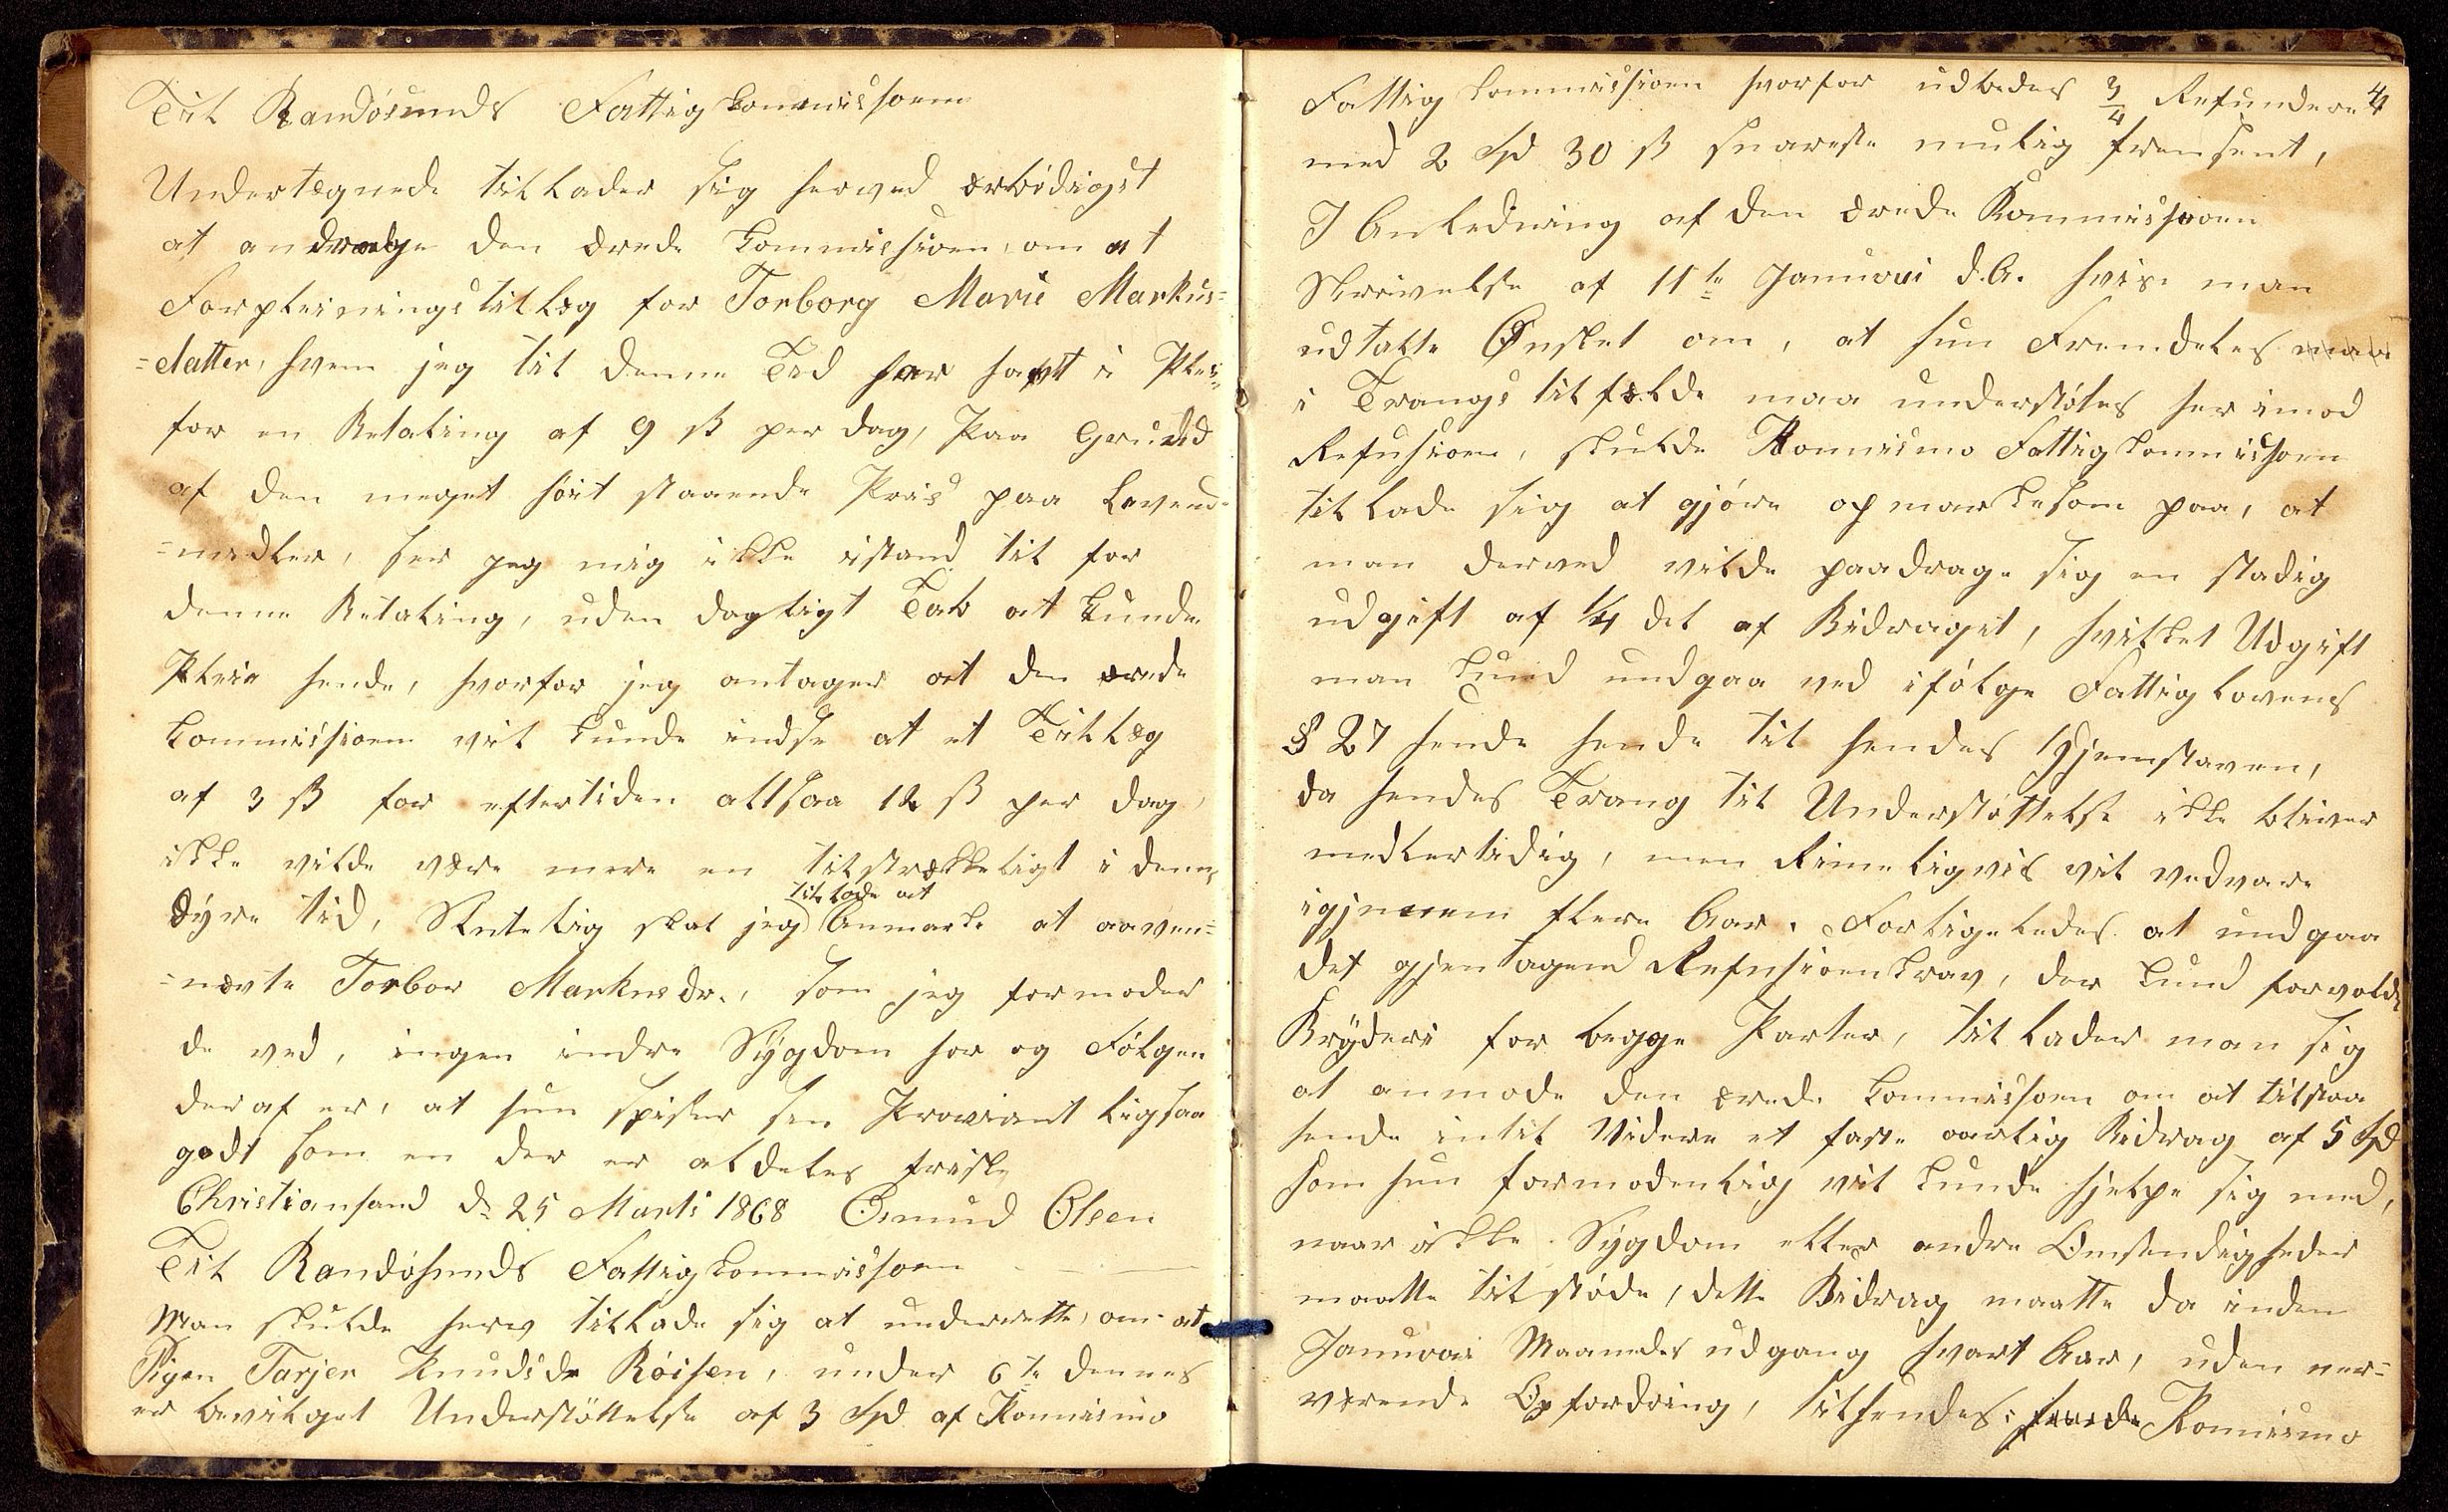 Til Randøsunds Fattigkommissoen
Undertegnede tillader sig herved ærbødigst
at andrage den ærede Kommissioen, om at
Forpleiningstillæg for Torborg Marie Markus=
=datter, hvem jeg til denne Tid har havt i Plei=
for en Betaling af 9 ß per dag, Paa Grund
af den meget høit staaende Pris paa Levend=
=medler, ser jeg mig ikke istand til for
denne Betaling, uden dagligt Tab at kunde
Pleie hende, hvorfor jeg antager at den ærede
Kommissioen vil kunde indse at et Tillæg
af 3 ß for eftertiden altsaa 12 ß per dag,
ikke vilde være mere en tilstrækkeligt i denne
dyre tid, Sluttelig skal jeg tillade at Anmærke at aaven=
=nævte Torbor Markusdr., som jeg formoder
de ved, ingen indre Sygdom har og Følgen
deraf er, at hun spiser sin Proviant ligsaa
godt som en der er aldeles friske
Christiansand d. 25 Marts 1868 Osmund Olsen
Til Randøsunds Fattigkommissoen
Man skulde herv tillade sig at underrette, om at
Pigen Tarjer Knudsdr Røisen, under 6te dennes
er bevilget Understøttelse af 3 Spd af Konnismo
4
Fattigkommissioen hvorfor udbedes 3/4 Refundere
med 2 Spd 30 ß snareste mulig fremsent,
I Anledning af den ærede Kommissioen
Skrivelse af 11te Januari d.A. hvis man
udtalte Ønsket om, at hun Fremdeles
i Trangs tilfælde maa understøtes her imod
Refusioen, skulde Konnismo Fattigkommissoen
tillade sig at gjøre opmærkesom paa, at
man derved vilde paadrage sig en stadig
udgift af 1/4 del af Bidraget, hvilket Udgift
man kund undgaa ved ifølge Fattiglovens
§ 27 sende hende til hendes Hjemstaven,
da hendes Trang til Understøttelse ikke bliver
medlertidig, men Rimeligvis vil vedvare
igjennem flere Aar. Forligeledes at undgaa
det gjentagend Refusioenkrav, der kund forvolde
Bryderi for begge Parter, tillader man sig
at anmode den ærede Kommissoen om at tilstaa
hende intil Videre et faste aarlig Bidrag af 5 Spd
som hun formodentlig vil kunde hjelpe sig med,
naar ikke Sygdom eller andre Omstendigheder
maatte tilstøde, dette Bidrag maatte da inden
Januari Maaneds udgang hvart Aar, uden ner=
værende Opfordring, tilsendes: Konnismo